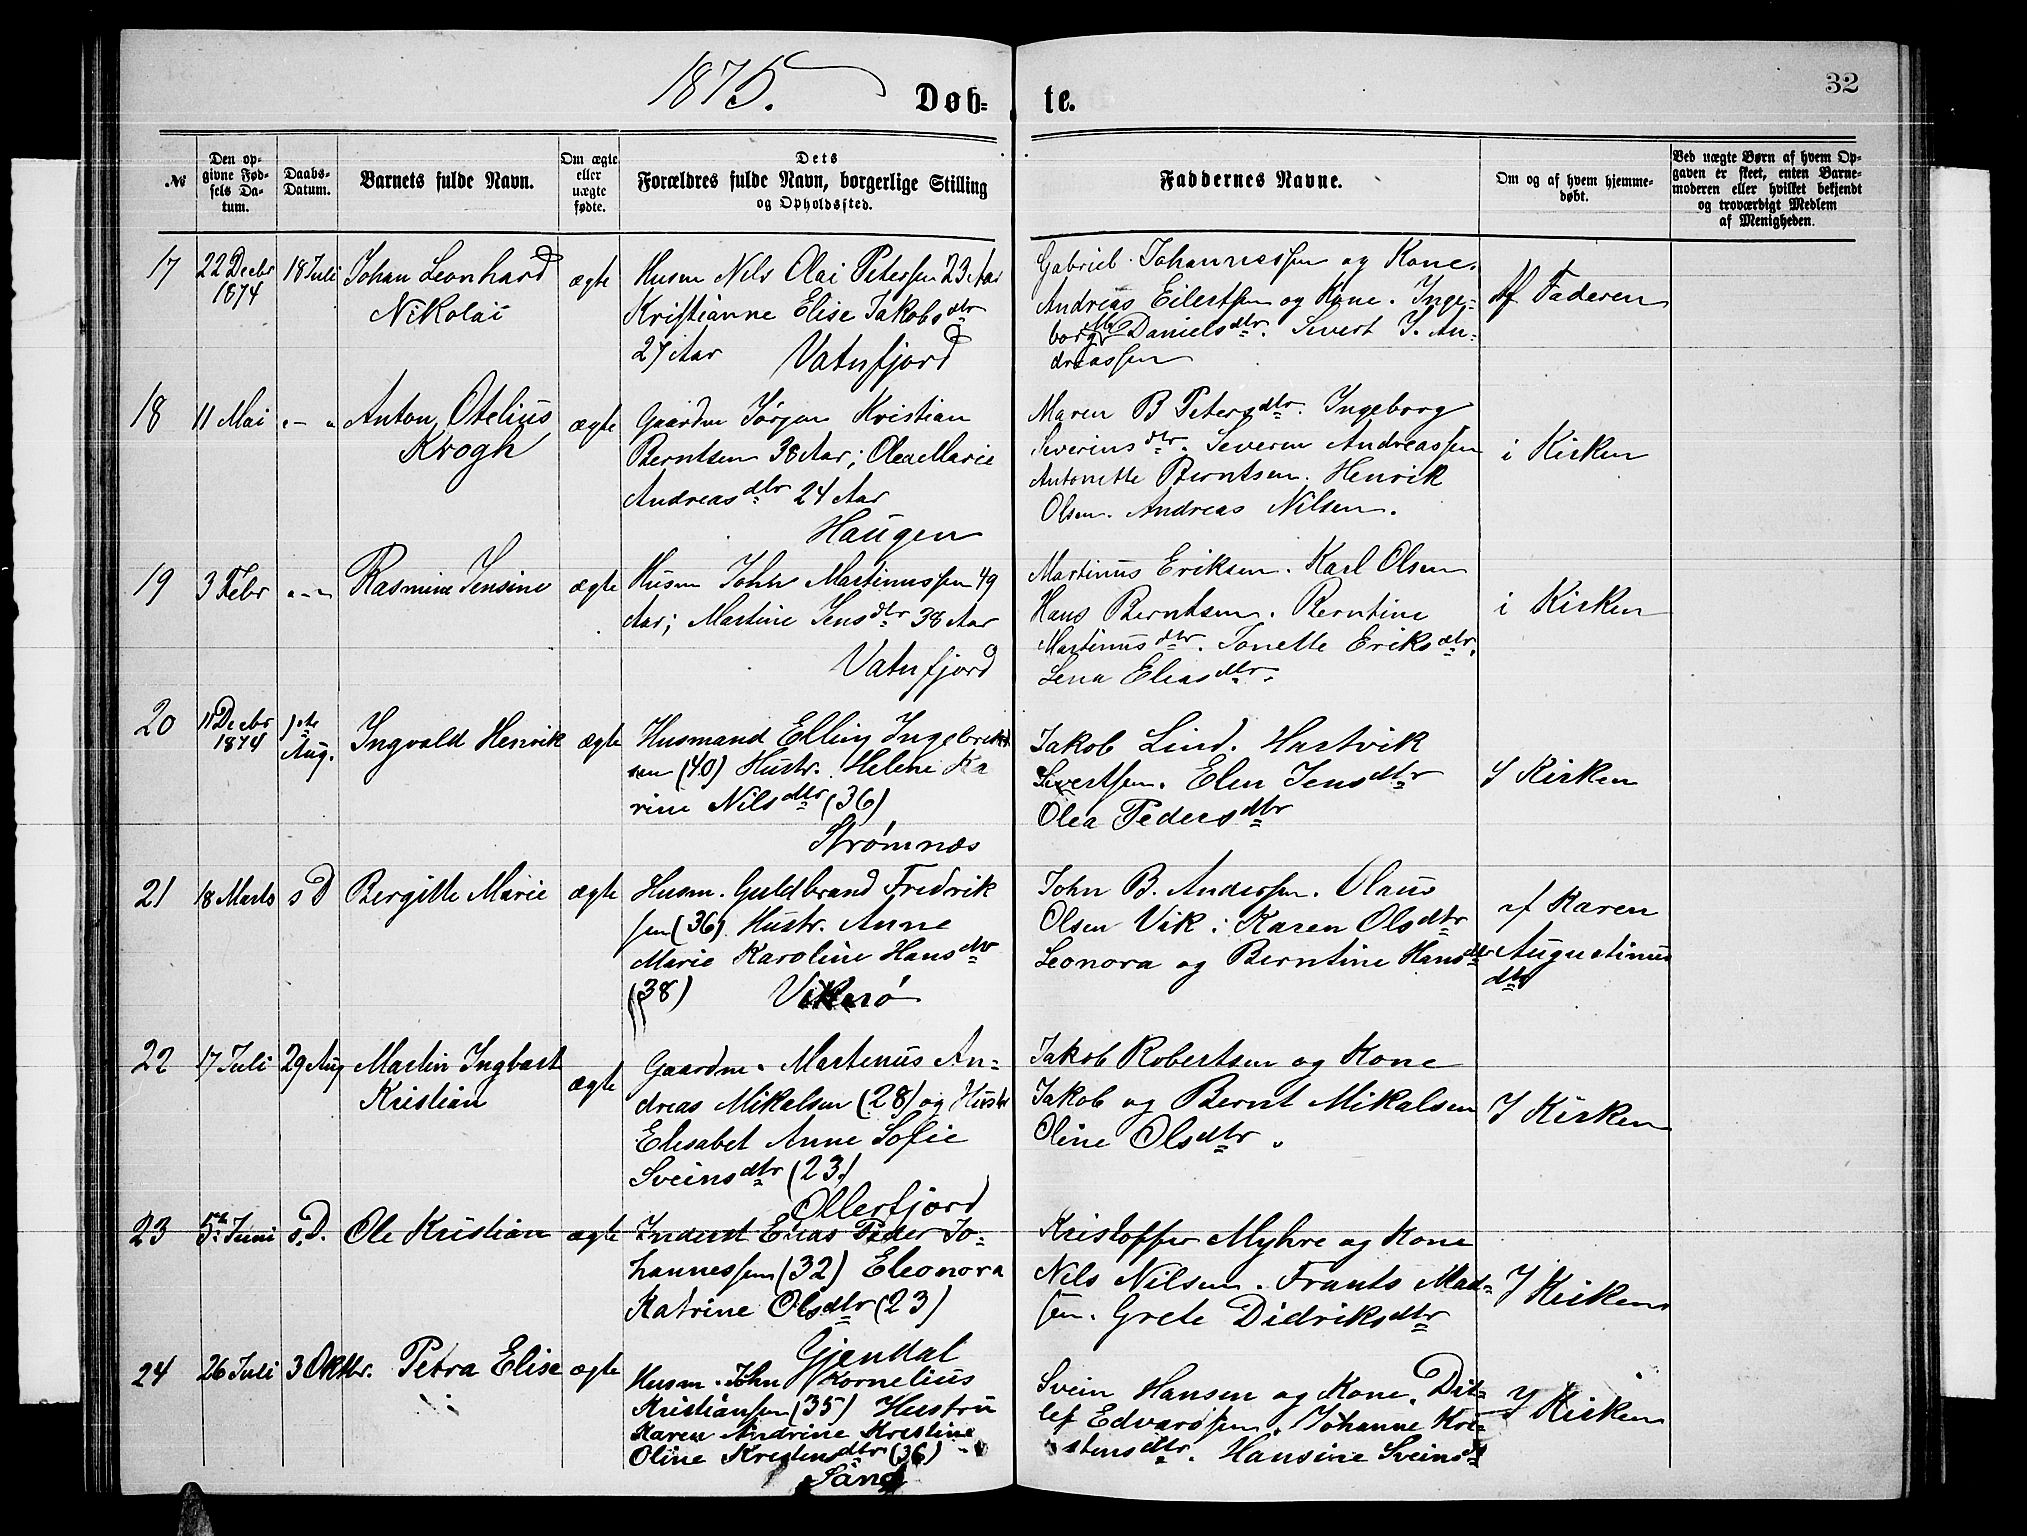 1875.
Døb-
te.
32
No
Den op-
givne Fød-
sels Da-
tum.
Daabs-
Datum.
Barnets fulde Navn.
Om ægte
eller
uægte
fødte.
Dets
Forældres fulde Navn, borgerlige Stilling
og Opholdssted.
Faddernes Navne.
Om og af hvem hjemme-
døbt.
Ved uægte Børn af hvem Op-
gaven er skeet, enten Barne-
moderen eller hvilket bekjendt
og troværdigt Medlem
af Menigheden.
17
22 Decbr
1874
18 Juli
Johan Leonhard
Nikolai
ægte
Husm Nils Olai Petersen 23 Aar
Kristianne Elise Jakobsdtr
27 Aar Vatnfjord
Gabriel Johannessen og Kone.
Andreas Eilertsen og Kone. Inge-
borg M Danielsdtr. Sivert J. An-
dreassen
Af Faderen
18
11 Mai
" – "
Anton Otelius
Krogh
ægte
Gaardm Jørgen Kristian
Berntsen 38 Aar; Olea Marie
Andreasdtr 24 Aar
Haugen
Maren B Petersdtr. Ingeborg
Severinsdtr. Severin Andreassen
Antonette Berntsen. Henrik
Olsen. Andreas Nilsen.
i Kirken
19
3 Febr
" – "
Rasmine Jensine
ægte
Husm John Martinussen 49
Aar; Martine Jensdtr 38 Aar
Vatnfjord
Martinus Eriksen. Karl Olsen
Hans Berntsen. Berntine
Martinusdtr. Jonette Eriksdtr.
Lena Eliasdtr.
i Kirken
20
11 Decbr
1874
1ste
Aug.
Ingvald Henrik
ægte
Husmand Elling Ingebrikt
sen (40) Hustr. Helene Ka
rine Nilsdtr (36)
Strømnæs
Jakob Lind. Hartvik
Sivertsen. Elen Jensdtr
Olea Pedersdtr
I Kirken
21
18 Marts
s D
Bergitte Marie
ægte
Husm. Guldbrand Fredrik
sen (36) Hustr. Anne
Marie Karoline Hansdtr
(38) Vikerø
John B. Anderssen. Olaus
Olsen Vik. Karen Olsdtr
Leonora og Berntine Hansdtr
af Karen
Augustinus
dtr
22
17 Juli
29 Aug
Martin Ingbart
Kristian
ægte
Gaardm. Martinus An-
dreas Mikalsen (28) og Hustr
Elisabet Anne Sofie
Sveinsdtr (23)
Ollerfjord
Jakob Robertsen og Kone
Jakob og Bernt Mikalsen
Oline Olsdtr.
I Kirken
23
5te Juni
s. D.
Ole Kristian
ægte
Inderst Elias Peder Jo-
hannessen (32) Eleonora
Katrine Olsdtr (23)
Gjendal
Kristoffer Myhre og Kone
Nils Nilsen. Frants Mad-
sen. Grete Didriksdtr
I Kirken
24
26 Juli
3 Oktbr.
Petra Elise
ægte
Husm. John Kornelius
Kristiansen (35) Hustru
Karen Andrine Kristine
Oline Kristensdtr (36)
Sand
Svein Hansen og Kone. Dit-
lef Edvardsen. Johanne Kri-
stensdtr. Hansine Sveinsdt
I Kirken